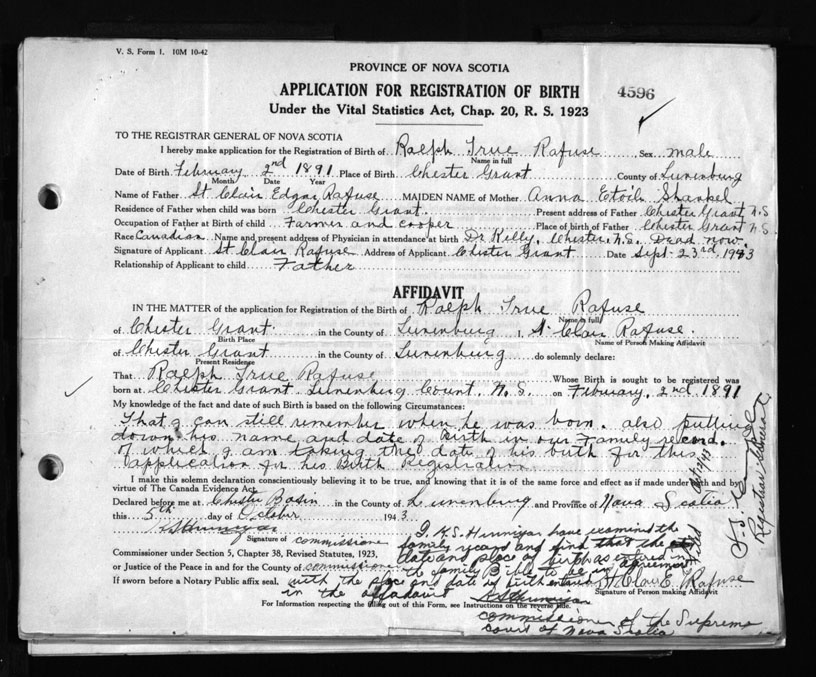 V. S. Form 1. 10M 10-42
PROVINCE OF NOVA SCOTIA
APPLICATION FOR REGISTRATION OF BIRTH
4596
Under the Vital Statistics Act, Chap. 20, R. S. 1923
TO THE REGISTRAR GENERAL OF NOVA SCOTIA
I hereby make application for the Registration of Birth of Ralph True Rafuse Sex male
Name in full
Date of Birth February 2nd 1891 Place of Birth Chester Grant County of Lunenburg
Month Date Year
Name of Father St Clair Edgar Rafuse MAIDEN NAME of Mother Anna Etoile
Residence of Father when child was born Chester Grant. Present address of Father Chester Grant N.S
Occupation of Father at Birth of child Farmer and cooper Place of birth of Father Chester Grant N.S.
Race Canadian Name and present address of Physician in attendance at birth Dr Kelly, Chester, N.S. Dead now.
Signature of Applicant St Clair Rafuse Address of Applicant Chester Grant Date Sept-23rd, 1943
Relationship of Applicant to child Father
AFFIDAVIT
IN THE MATTER of the application for Registration of the Birth of Ralph True Rafuse
Name in full
of Chester Grant in the County of Lunenburg I, St Clair Rafuse.
Birth Place Name of Person Making Affidavit
of Chester Grant in the County of Lunenburg do solemnly declare:
Present Residence
That Ralph True Rafuse Whose Birth is sought to be registered was
born at Chester Grant Lunenburg Count. N.S. on February, 2nd 1891
My knowledge of the fact and date of such Birth is based on the following Circumstances:
That I can still remember when he was born. also putting
down his name and date of Birth in our Family record.
of which I am taking the date of his birth for this
application for his Birth Registration
I make this solemn declaration conscientiously believing it to be true, and knowing that it is of the same force and effect as if made under oath and by
virtue of The Canada Evidence Act.
Declared before me at Chester Basin in the County of Lunenburg and Province of Nova Scotia
this 5th day of October 1943.
Signature of commissioner
I K.S. Hennigar have examined the
family record and find that the
date and place of birth as entered in
the family Bible to be in agreement
with the place and date of birth entered
in the affidavit
Commissioner under Section 5, Chapter 38, Revised Statutes, 1923,
or Justice of the Peace in and for County of commissioner
If sworn before a Notary Public affix seal,
St Clair E Rafuse
Signature of Person Making Affidavit
KSHennigar
For Information respecting the filling out of this Form, see Instructions on the reverse side.
commissioner of the Supreme
court of Nova Scotia
Registrar General